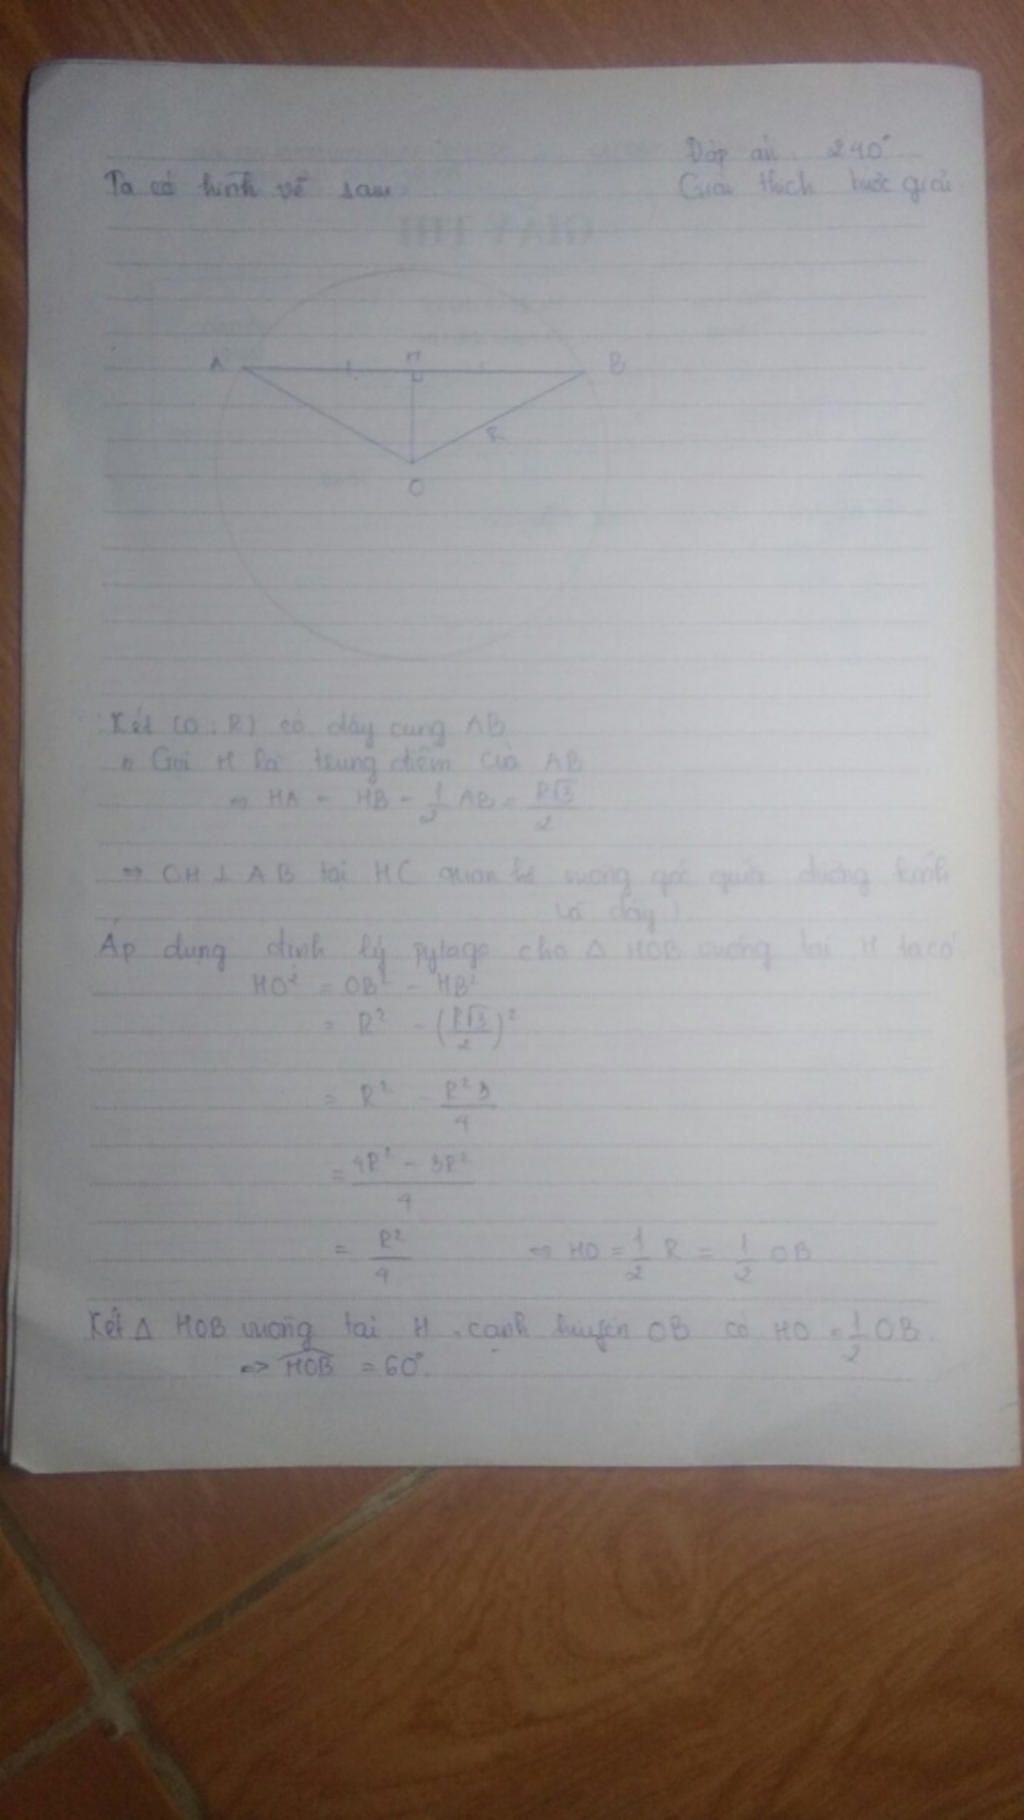 Đáp án: 240°
Ta có hình vẽ sau: Giải thích bước giải
GIẤY THI
A H B
R
O
Xét (O; R) có dây cung AB
Gọi H là trung điểm của AB
⇒ HA = HB = 1/2 AB = R√3/2
⇒ OH ⊥ AB tại H ( quan hệ vuông góc giữa đường kính
và dây)
Áp dụng định lý pytago cho Δ HOB vuông tại H ta có
HO² = OB² - HB²
= R² - (R√3/2)²
= R² - R²3/4
= 4R² - 3R²/4
= R²/4 ⇒ HO = 1/2 R = 1/2 OB
Xét Δ HOB vuông tại H, cạnh huyền OB có HO = 1/2 OB.
⇒ HOB = 60°.